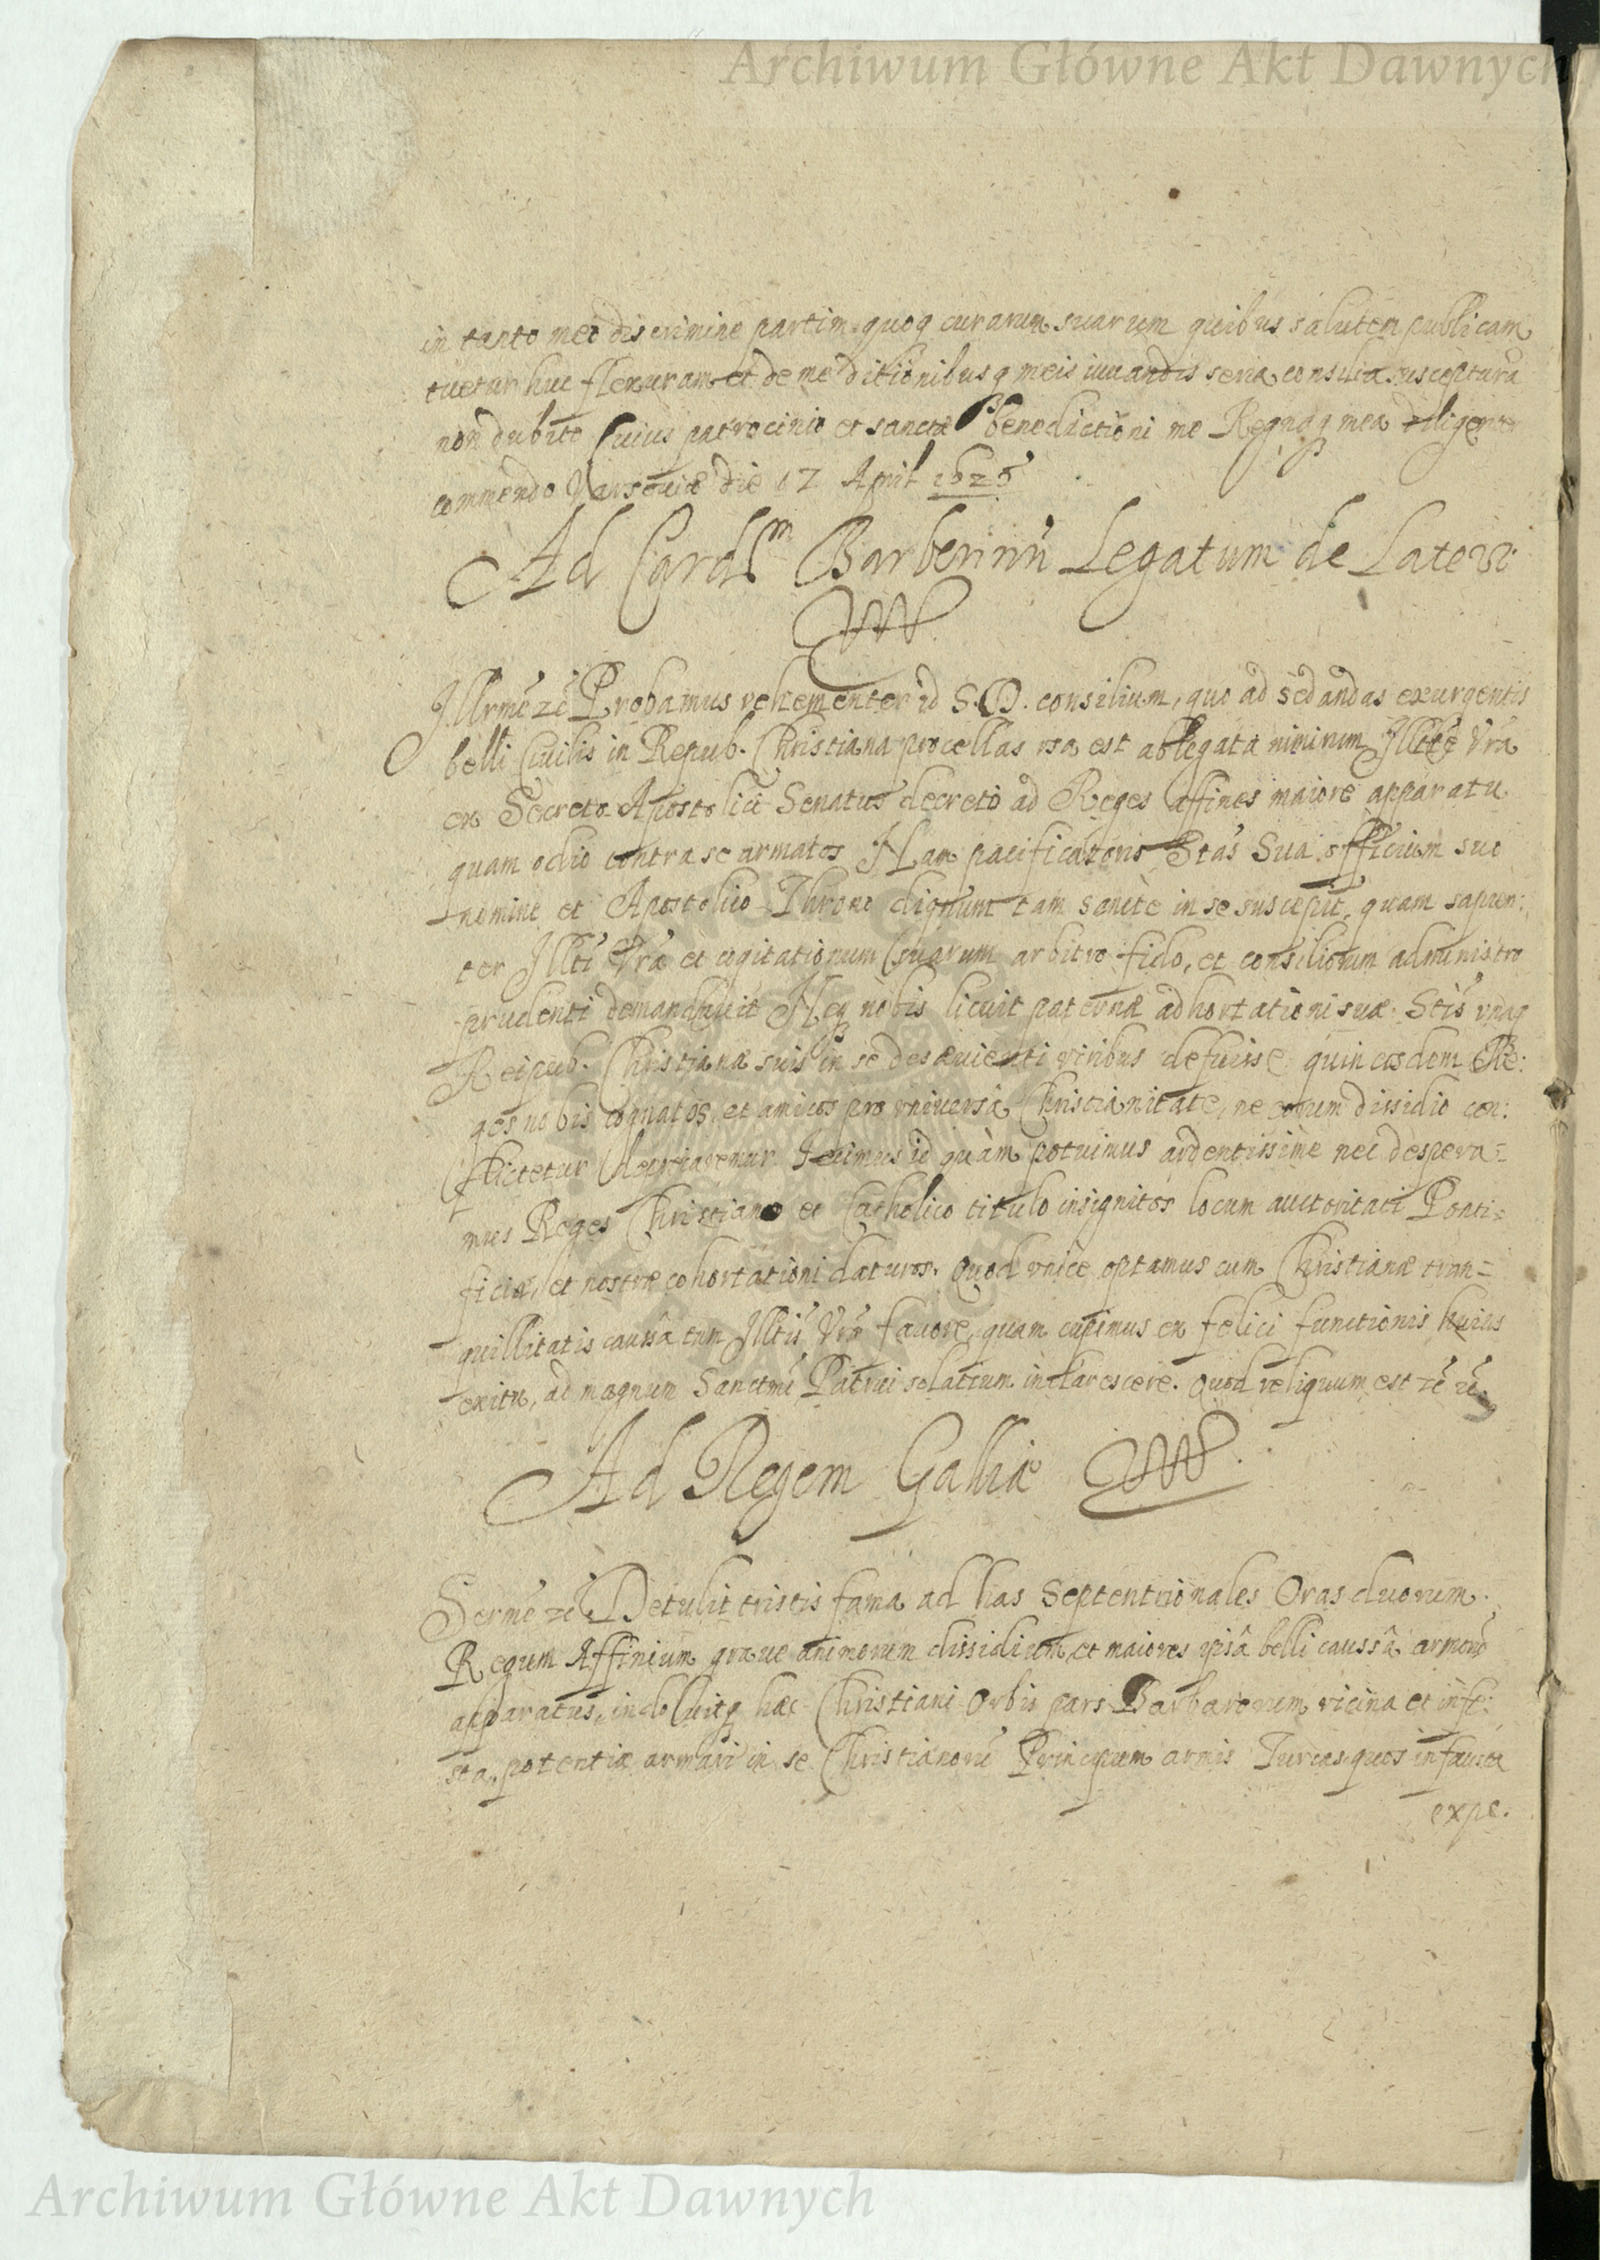 Archiwum Główne Akt Dawnych
in tanto meo discrimine partim quoq curarum suarum quibus salutem publicam
tuetur huc flexuram et de me ditionibusq meis iuuandis seria consilia suscepturã
non dubito Cuius patrocinio et sanctæ benedictioni me Regnaq mea diligenter
commendo Varsouiæ die 17 April 1625
Ad Cardlm Barberinũ Legatum de Latere
Illrmẽ zẽ Probamus vehementer id S. D. consilium, quo ad sedandas exurgentis
belli Ciuilis in Repub. Christiana procellas usa est ablegata nimirum Illtẽ Vrã
ex Secreto Apostolici Senatus decreto ad Reges affines maiore apparatu
quam odio contra se armatos Nam pacificatoris Stas Sua officium suo
nomine et Apostolico Throno dignum tam sanctè in se suscepit, quam sapien:
ter Illti Vrã et cogitationum suarum arbitro fido, et consiliorum administro
prudenti demandauit Neq nobis licuit paternæ adhortationi suæ Stis vnaq
Reipub. Christianæ suis in se desæuienti viribus defuisse quin eosdem Re:
ges nobis cognatos et amicos pro vniuersa Christianitate, ne eorum dissidio con:
flictetur Fecimus id quàm potuimus ardentissime nec despera=
mus Reges Christiano et Catholico titulo insignitos locum auctoritati Ponti=
ficiæ, et nostræ cohortationi daturos. Quod vnice optamus cum Christianæ tran=
quillitatis caussa tum Illtis Vræ fauore, quam cupimus ex felici functionis huius
exitu, ad magnum Sanctmi Patrui solatium inclarescere. Quod reliquum est zẽ zẽ
Ad Regem Galliæ
Sermẽ zẽ Detulit tristis fama ad has Septentrionales Oras duorum
Regum Affinium graue animorum dissidium et maiores ipsâ belli caussâ armorũ
apparatus, indoluitq hæc Christiani Orbis pars Barbarorum vicina et infe:
sta potentiæ armari in se Christianorũ Principum armis Turcas quos infausta
expe.
Archiwum Główne Akt Dawnych